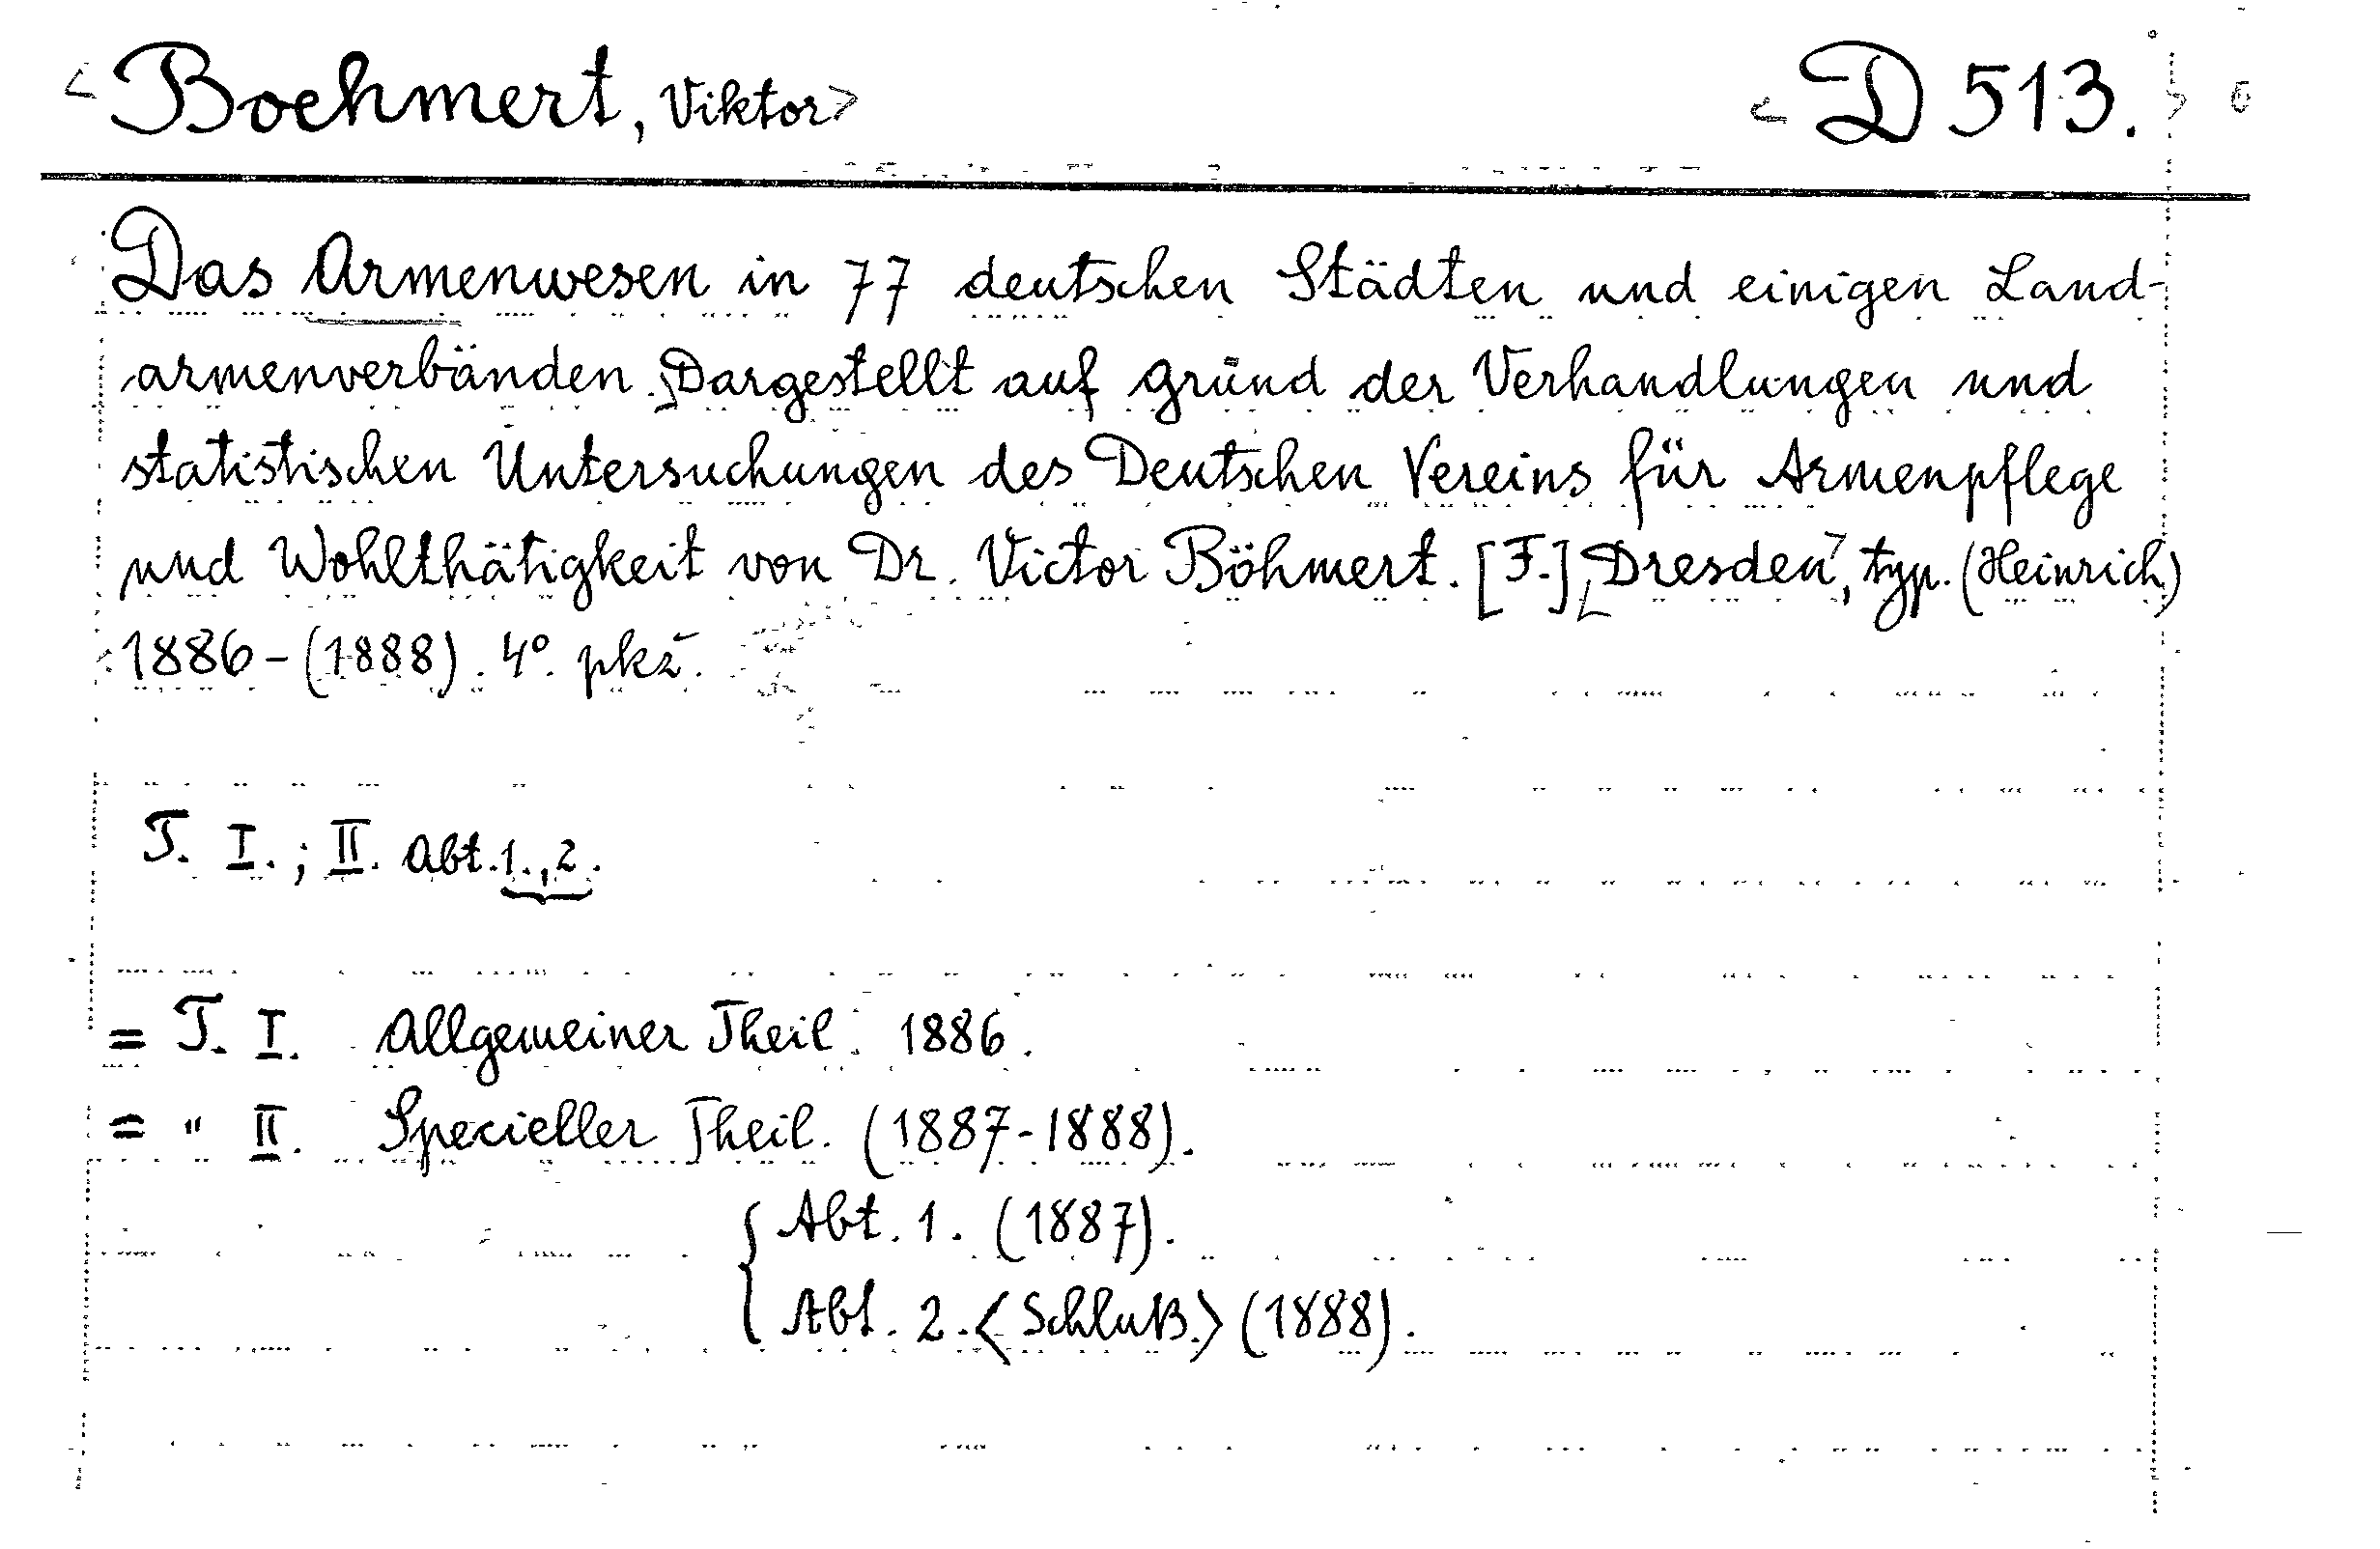 <Boehmert, Viktor> <D 513.>
Das Armenwesen in 77 deutschen Städten und einigen Land-
armenverbänden. Dargestellt auf Grund der Verhandlungen und
statistischen Untersuchungen des Deutschen Vereins für Armenpflege
und Wohlthätigkeit von Dr. Victor Böhmert. [F.] Dresden, typ. (Heinrich)
1886-(1888). 4°. pkz.
T. I.; II. Abt. 1., 2.
= T. I. Allgemeiner Theil. 1886.
= " II. Specieller Theil. (1887-1888).
{ Abt. 1. (1887).
Abt. 2. <Schluß.> (1888).